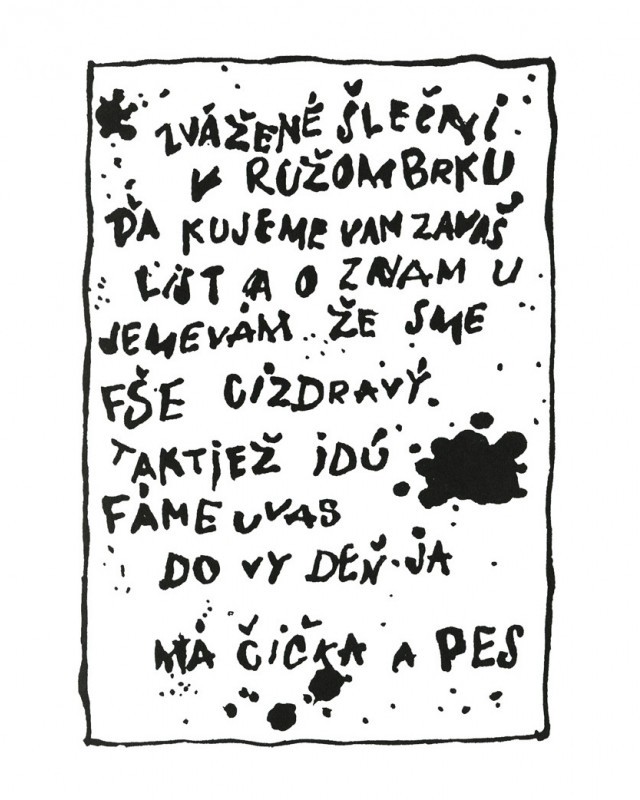 ZVÁŽENÉ ŠLEČNI
V RUŽOMBRKU
ĎA KUJEME VAM ZAVAŠ
LIST A O ZNAM U
JEMEVÁM ŽE SME
FŠE CIZDRAVÝ.
TAKTJEŽ IDÚ
FÁME UVAS
DO VY DEŇ-JA
MÁ ČIČKA A PES